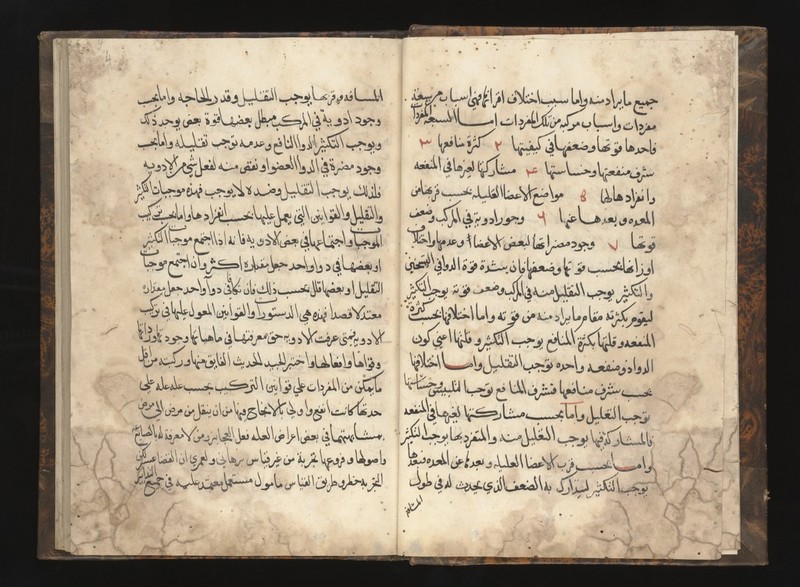 جميع ما يراد منه واما سبب اختلاف اقرانها فهى اسباب
مفردات واسباب مركبه من تلك المفردات اما السبعه المفردات
فاحدها قوتها وضعفها فى كيفيتها ٢ كثرة منافعها ٣
شرف منفعتها وخساستها ٤ مشاركتها لغيرها فى المنفعه
وانفرادها لها ٥ مواضع الاعضا العليله بحسب قربها من
المعده وبعدها عنها ٦ وجود ادوية فى المركب وضعف
قوتها ٧ وجود مضراتها لبعض الاعضا وعدمها واختلاف
اوزانها بحسب قوتها وضعفها فان بشدة قوة الدوا فى التسخين
والتكثير يوجب التقليل منه فى المركب وضعف قوته يوجب التكثير
ليقوم بكثرته مقام ما يراد منه من قوته واما اختلافها بحسب كثرة
المنفعه وقلتها بكثرة المنافع يوجب التكثير وقلتها اعنى كون
الدوا ذو منفعه واحده توجب التقليل واما اختلافها
بحسب شرف منافعها فشرف المنافع توجب التكثير وخساستها
توجب التقليل واما بحسب مشاركتها لغيرها فى المنفعه
فالمشاركه فيها يوجب التقليل منه والمنفرد بها يوجب التكثير
واما بحسب قرب الاعضا العليله وبعدها عن المعده فبعدها
يوجب التكثير ليتدارك به الضعف الذى يحدث له فى طول
المسافه
المسافه وقربها يوجب التقليل وقدر الحاجه واما بحسب
وجود ادويه فى المركب مبطل بعضها قوة بعض يوجد ذلك
ويوجب التكثير الدوا النافع وعدمه توجب تقليله واما بحسب
وجود مضرة فى الدوا لعضو او نقص منه لفعل شى من الادويه
فلذلك يوجب التقليل وضده لا يوجب فهذه موجبات التكثير
والتقليل والقوانين التى يعمل عليها بحسب انفرادها واما بحسب تركيب
الموجبات واجتماعها فى بعض الادويه فانه اذا اجتمع موجبات التكثير
او بعضها فى دوا واحد جعل مقداره اكثر وان اجتمع موجبات
التقليل او بعضها قلل بحسب ذلك فان تكافى دوا واحد جعل مقداره
معتدلا قصدا فهذه هى الدستورات والقوانين المعول عليها فى تركيب
الادويه فمتى عرفت الادويه حق معرفتها فى ماهياتها وجود
وقواها وافعالها واختير الجيد الحديث الفايق منها وركبت من اقل
ما يمكن من المفردات على قوانين التركيب بحسب عله عله على
حدتها كانت انفع واولى بالانجاح فيها من ان ينقل من مرض الى مرض
بمشابهتها فى بعض اعراض العله فعل المجازين من لا معرفة له
واصولها وفروعها بتجربة من غير قياس برهانى ولعمرى ان القضا
التجربه خطر وطريق القياس مامول مستعمل معتمد عليه فى جميع